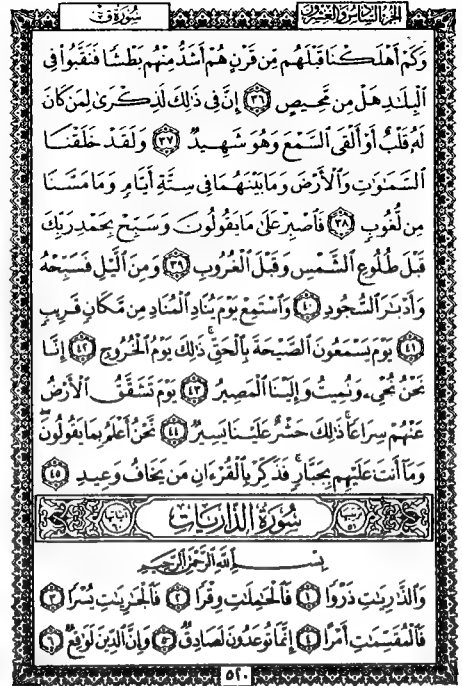 الجزء السادس والعشرون
سورة ق
وَكَمْ أَهْلَكْنَا قَبْلَهُم مِّن قَرْنٍ هُمْ أَشَدُّ مِنْهُم بَطْشًا فَنَقَّبُوا۟ فِى
ٱلْبِلَٰدِ هَلْ مِن مَّحِيصٍ ٣٦ إِنَّ فِى ذَٰلِكَ لَذِكْرَىٰ لِمَن كَانَ
لَهُۥ قَلْبٌ أَوْ أَلْقَى ٱلسَّمْعَ وَهُوَ شَهِيدٌ ٣٧ وَلَقَدْ خَلَقْنَا
ٱلسَّمَٰوَٰتِ وَٱلْأَرْضَ وَمَا بَيْنَهُمَا فِى سِتَّةِ أَيَّامٍ وَمَا مَسَّنَا
مِن لُّغُوبٍ ٣٨ فَٱصْبِرْ عَلَىٰ مَا يَقُولُونَ وَسَبِّحْ بِحَمْدِ رَبِّكَ
قَبْلَ طُلُوعِ ٱلشَّمْسِ وَقَبْلَ ٱلْغُرُوبِ ٣٩ وَمِنَ ٱلَّيْلِ فَسَبِّحْهُ
وَأَدْبَٰرَ ٱلسُّجُودِ ٤٠ وَٱسْتَمِعْ يَوْمَ يُنَادِ ٱلْمُنَادِ مِن مَّكَانٍ قَرِيبٍ
٤١ يَوْمَ يَسْمَعُونَ ٱلصَّيْحَةَ بِٱلْحَقِّ ۚ ذَٰلِكَ يَوْمُ ٱلْخُرُوجِ ٤٢ إِنَّا
نَحْنُ نُحْىِۦ وَنُمِيتُ وَإِلَيْنَا ٱلْمَصِيرُ ٤٣ يَوْمَ تَشَقَّقُ ٱلْأَرْضُ
عَنْهُمْ سِرَاعًا ۚ ذَٰلِكَ حَشْرٌ عَلَيْنَا يَسِيرٌ ٤٤ نَّحْنُ أَعْلَمُ بِمَا يَقُولُونَ ۖ
وَمَآ أَنتَ عَلَيْهِم بِجَبَّارٍ ۖ فَذَكِّرْ بِٱلْقُرْءَانِ مَن يَخَافُ وَعِيدِ ٤٥
سورة الذاريات
بِسْمِ ٱللَّهِ ٱلرَّحْمَٰنِ ٱلرَّحِيمِ
وَٱلذَّٰرِيَٰتِ ذَرْوًا ١ فَٱلْحَٰمِلَٰتِ وِقْرًا ٢ فَٱلْجَٰرِيَٰتِ يُسْرًا ٣
فَٱلْمُقَسِّمَٰتِ أَمْرًا ٤ إِنَّمَا تُوعَدُونَ لَصَادِقٌ ٥ وَإِنَّ ٱلدِّينَ لَوَٰقِعٌ ٦
٥٢٠